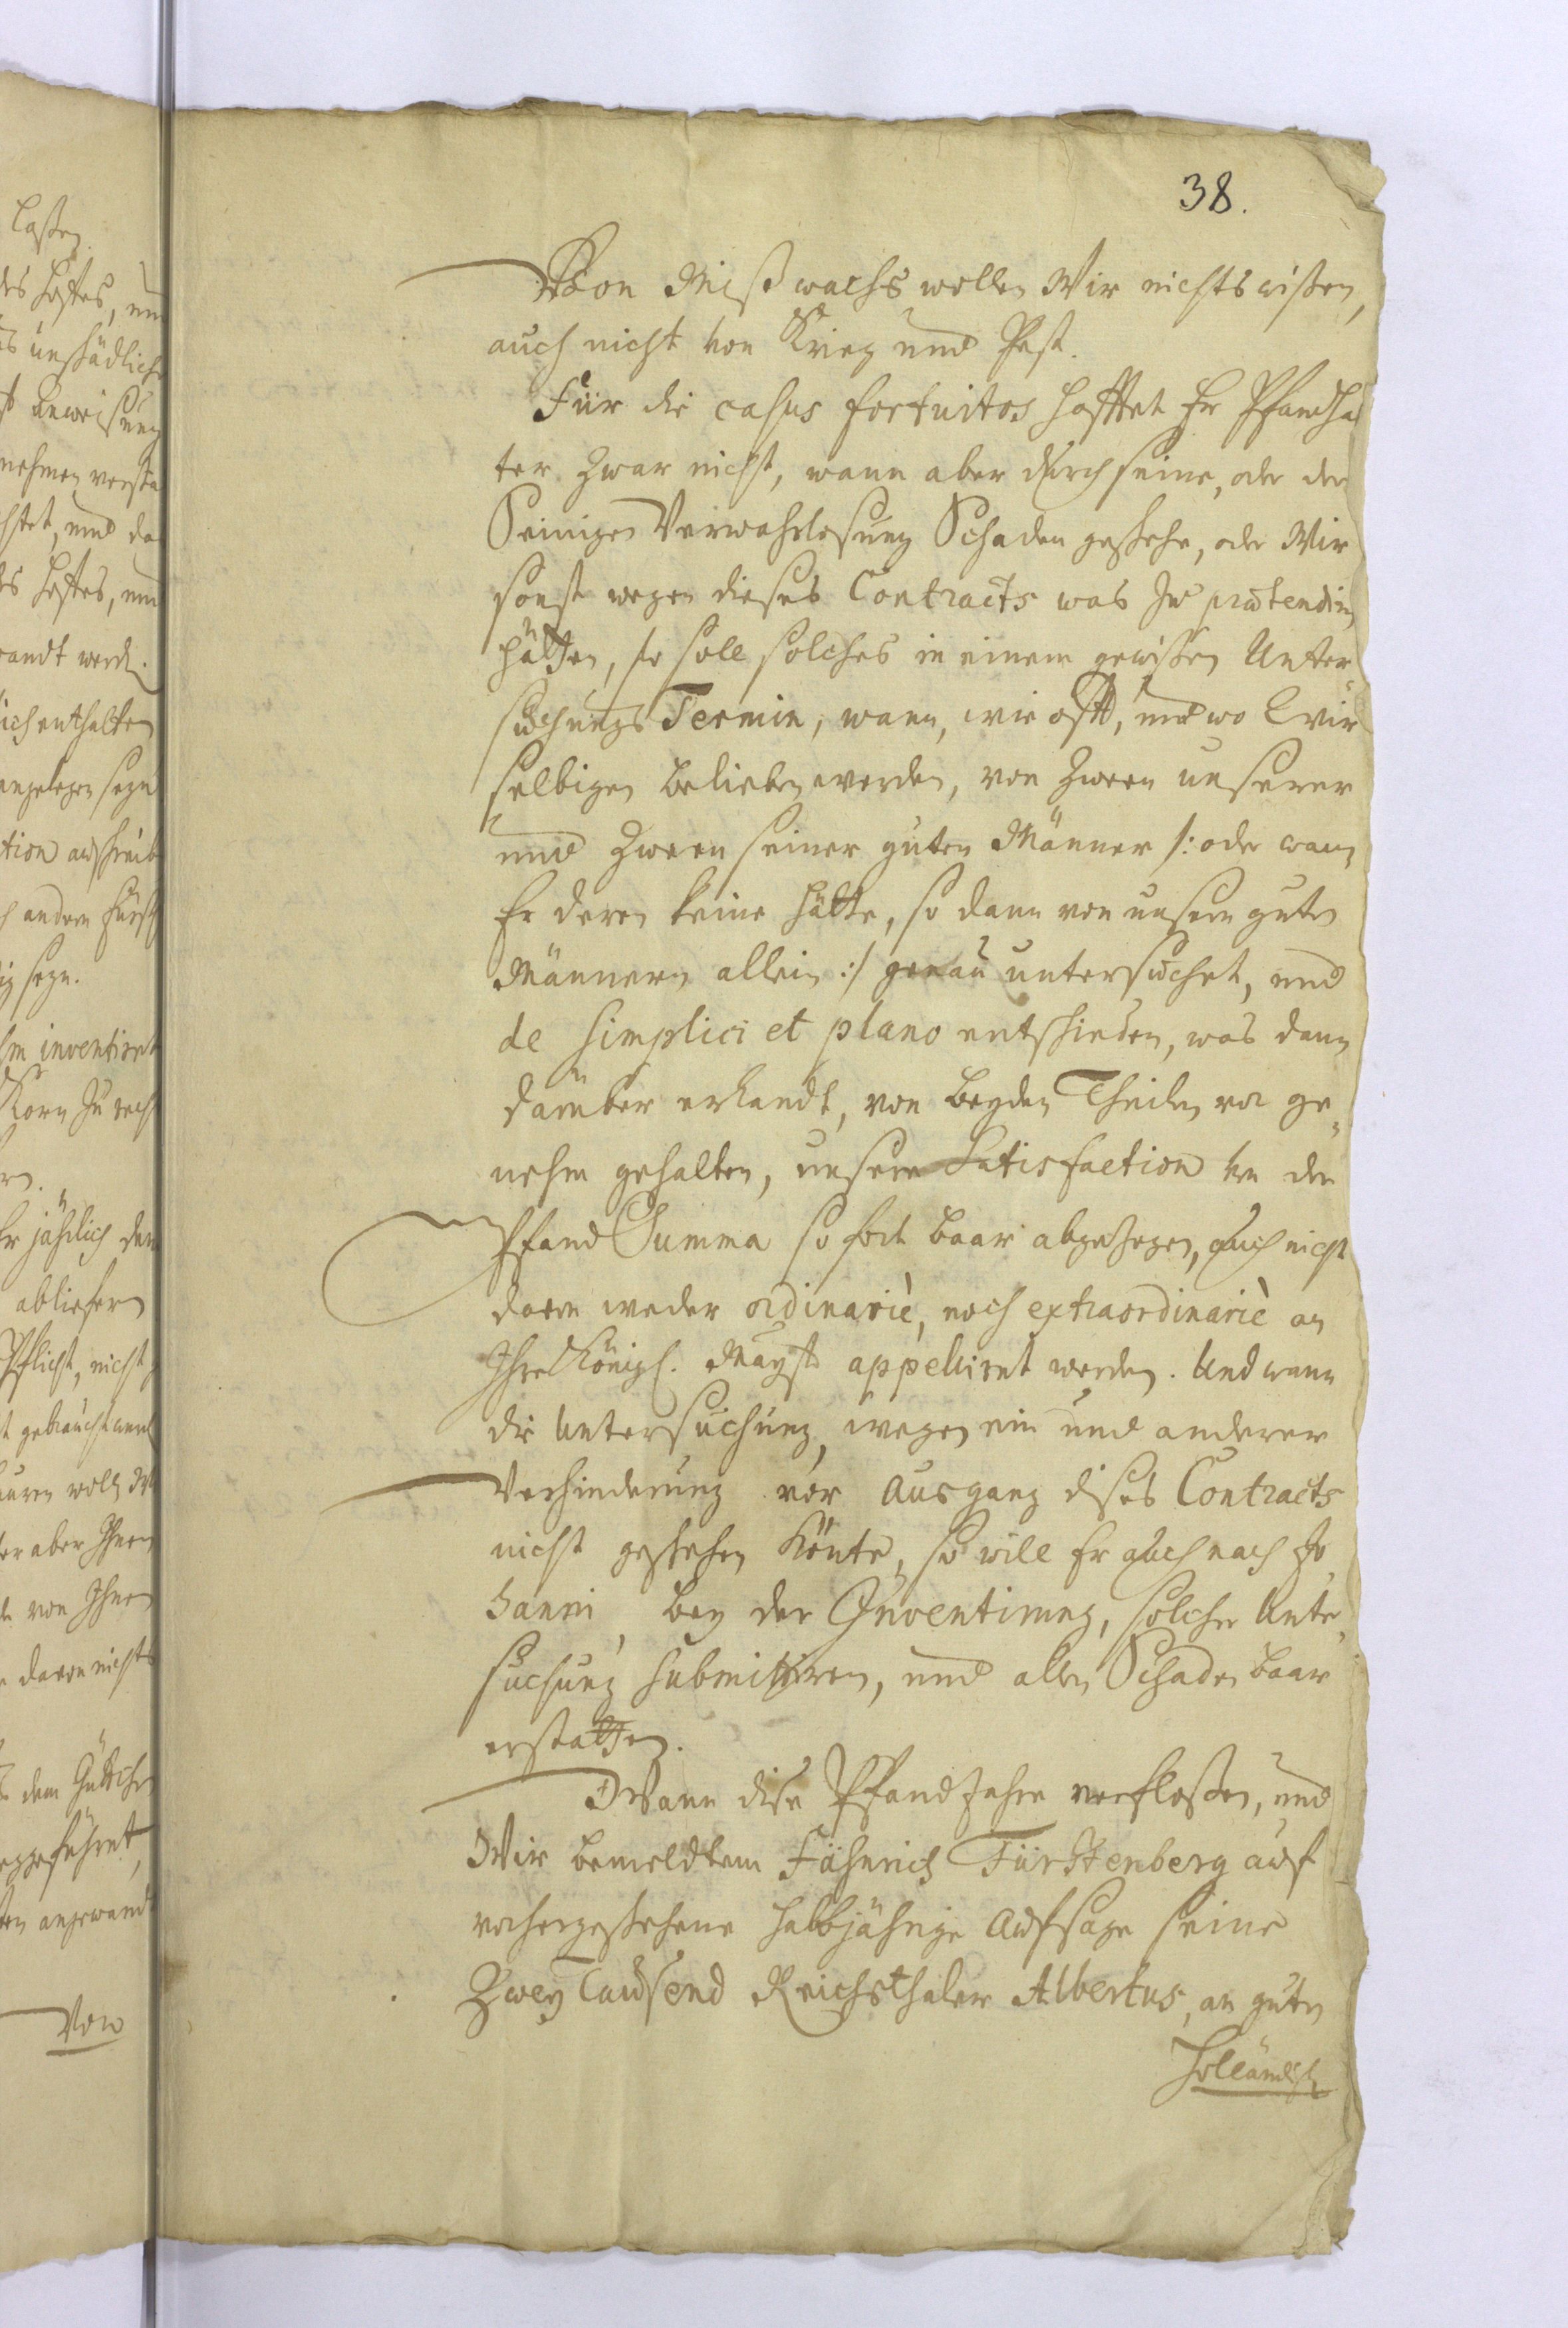 38.
Von Mißwachs wollen Wir nichts wißen,
auch nicht von Krieg und Pest.
Für die casus fortuitos hafftet Er Pfandhal
ter zwar nicht, wann aber durch seine, oder der
Seinigen Verwahrlosung Schaden geschehe, oder Wir
sonst wegen dieses Contracts was zu prætendiren
hätten, so soll solches in einem gewißen Unter
suchungs Termin, wann, wie offt, und wo Wir
selbigen belieben werden, von zween unserer
und zween seiner guten Männer /: oder wann
Er deren keine hätte, so dann von unsern guten
Männern allein :/ genau untersuchet, und
de simplici et plano entschieden, was dann
darüber erkandt, von beyden Theilen vor ge,
nehm gehalten, unsere Satisfaction von der
Pfand Summa so fort baar abgezogen, auch nicht
davon weder ordinariè, noch extraordinariè an
Ihre Königl. Mayst appelliret werden. Und wann
die Untersuchung, wegen ein und anderer
Verhinderung vor Ausgang dises Contracts
nicht geschehen könte, so will Er auch nach Jo
hanni, bey der Inventirung, solcher Unter,
suchung submittiren, und allen Schaden baar
erstatten.
Wann dise Pfandjahre verfloßen, und
Wir bemeldtem Fähnrich Fürstenberg auf
vorhergeschehene halbjährige Aufsage seine
Zwey Tausend Reichsthaler Albertus, an guten
Holländisch
laßen.
des Hofes, und
unschädliche
Anweisung
nehmen
und da
des Hofes, und
wandt werd.
sich enthalten
angelegen seyn
tion
andern
seyn.
inventiret
Korn zu
Er jährlich
abliefern
Pflicht, nicht
gebraucht
wolln
er aber Ihnen
von Ihnen
davon nichts
dem
eggeführet,
angewandt
Von